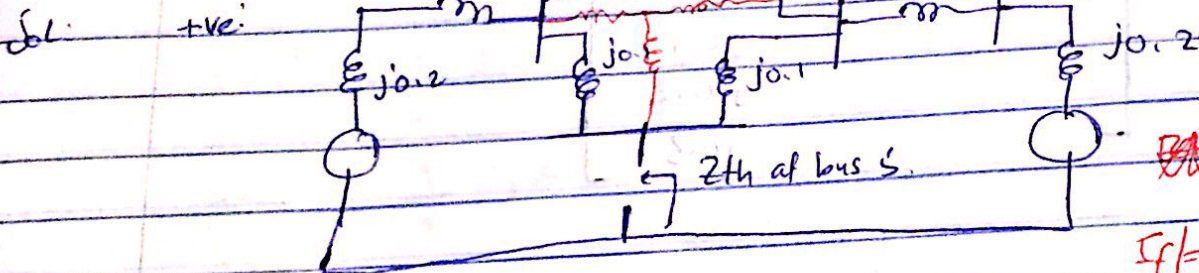 Sol: +ve:
j0.2 j0. j0.1 j0.2
Zth at bus 5.
If/=